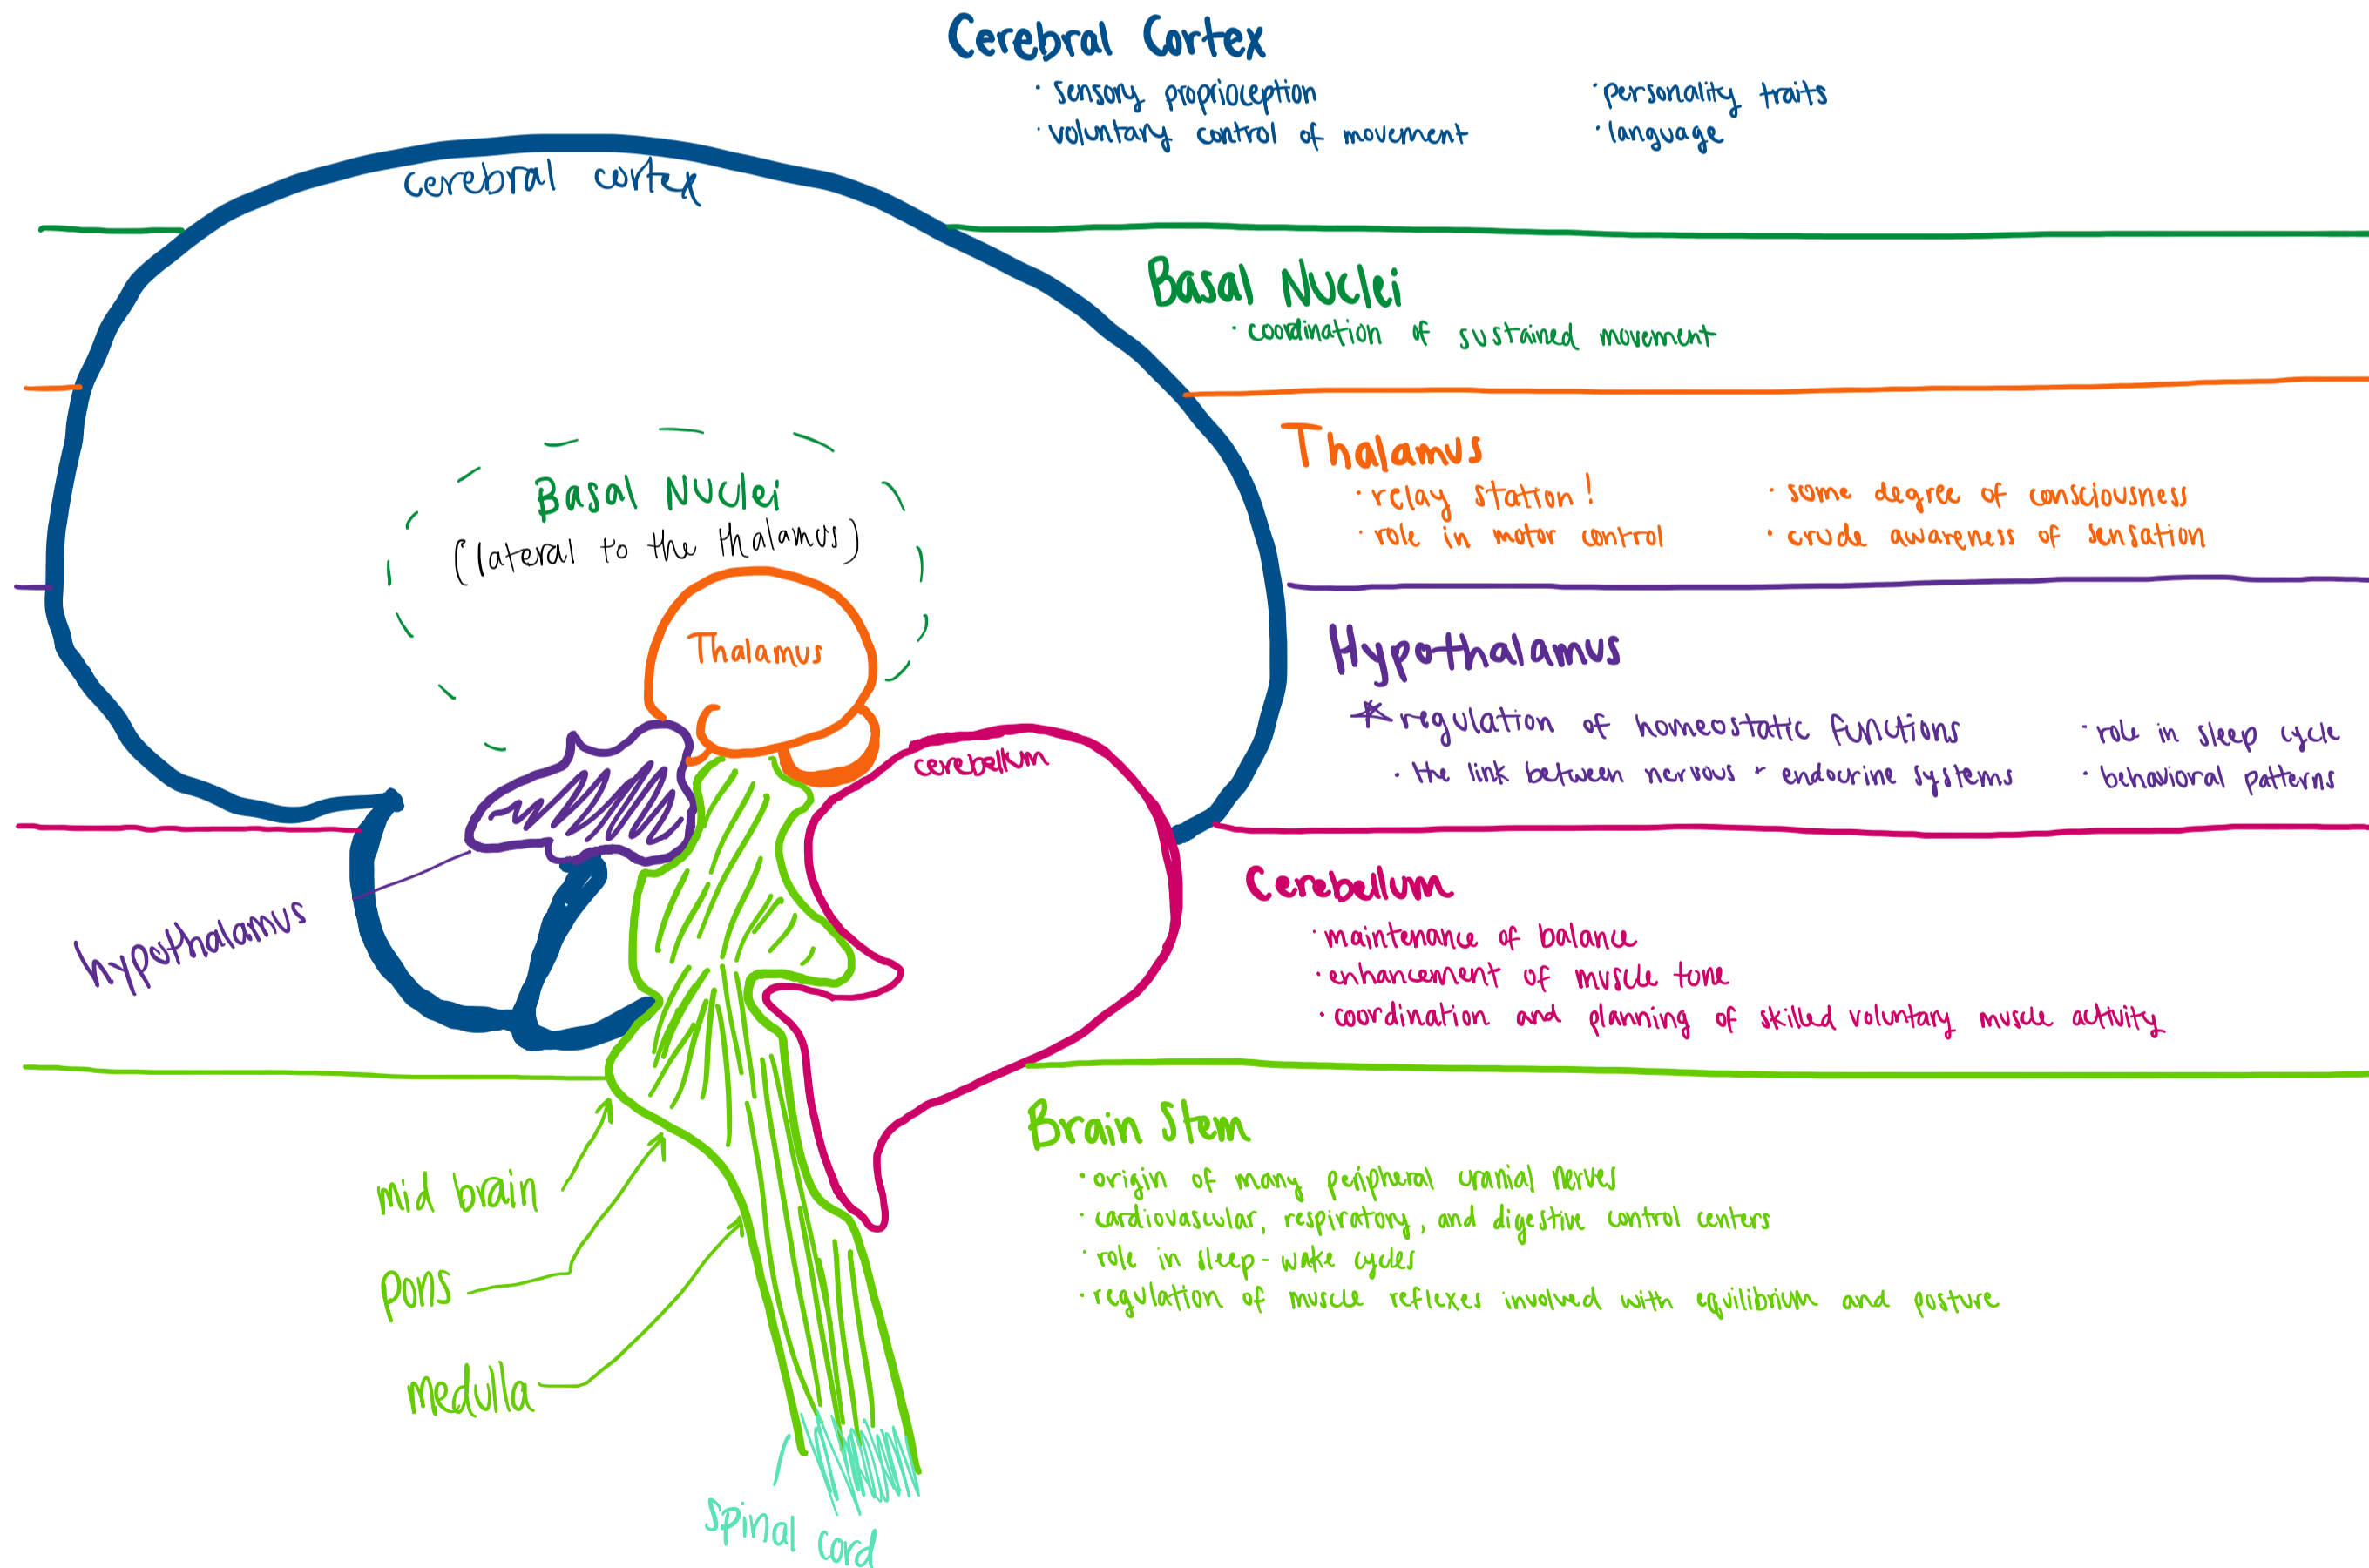 Cerebral Cortex
· sensory proprioception
· personality traits
· voluntary control of movement
· language
cerebral cortex
Basal Nuclei
· coordination of sustained movement
Thalamus
· relay station!
· some degree of consciousness
· role in motor control
· crude awareness of sensation
Basal Nuclei
(lateral to the thalamus)
Thalamus
Hypothalamus
* regulation of homeostatic functions
· role in sleep cycle
· the link between nervous + endocrine systems
· behavioral patterns
cerebellum
hypothalamus
Cerebellum
· maintenance of balance
· enhancement of muscle tone
· coordination and planning of skilled voluntary muscle activity
Brain Stem
· origin of many peripheral cranial nerves
· cardiovascular, respiratory, and digestive control centers
· role in sleep-wake cycles
· regulation of muscle reflexes involved with equilibrium and posture
mid brain
pons
medulla
spinal cord